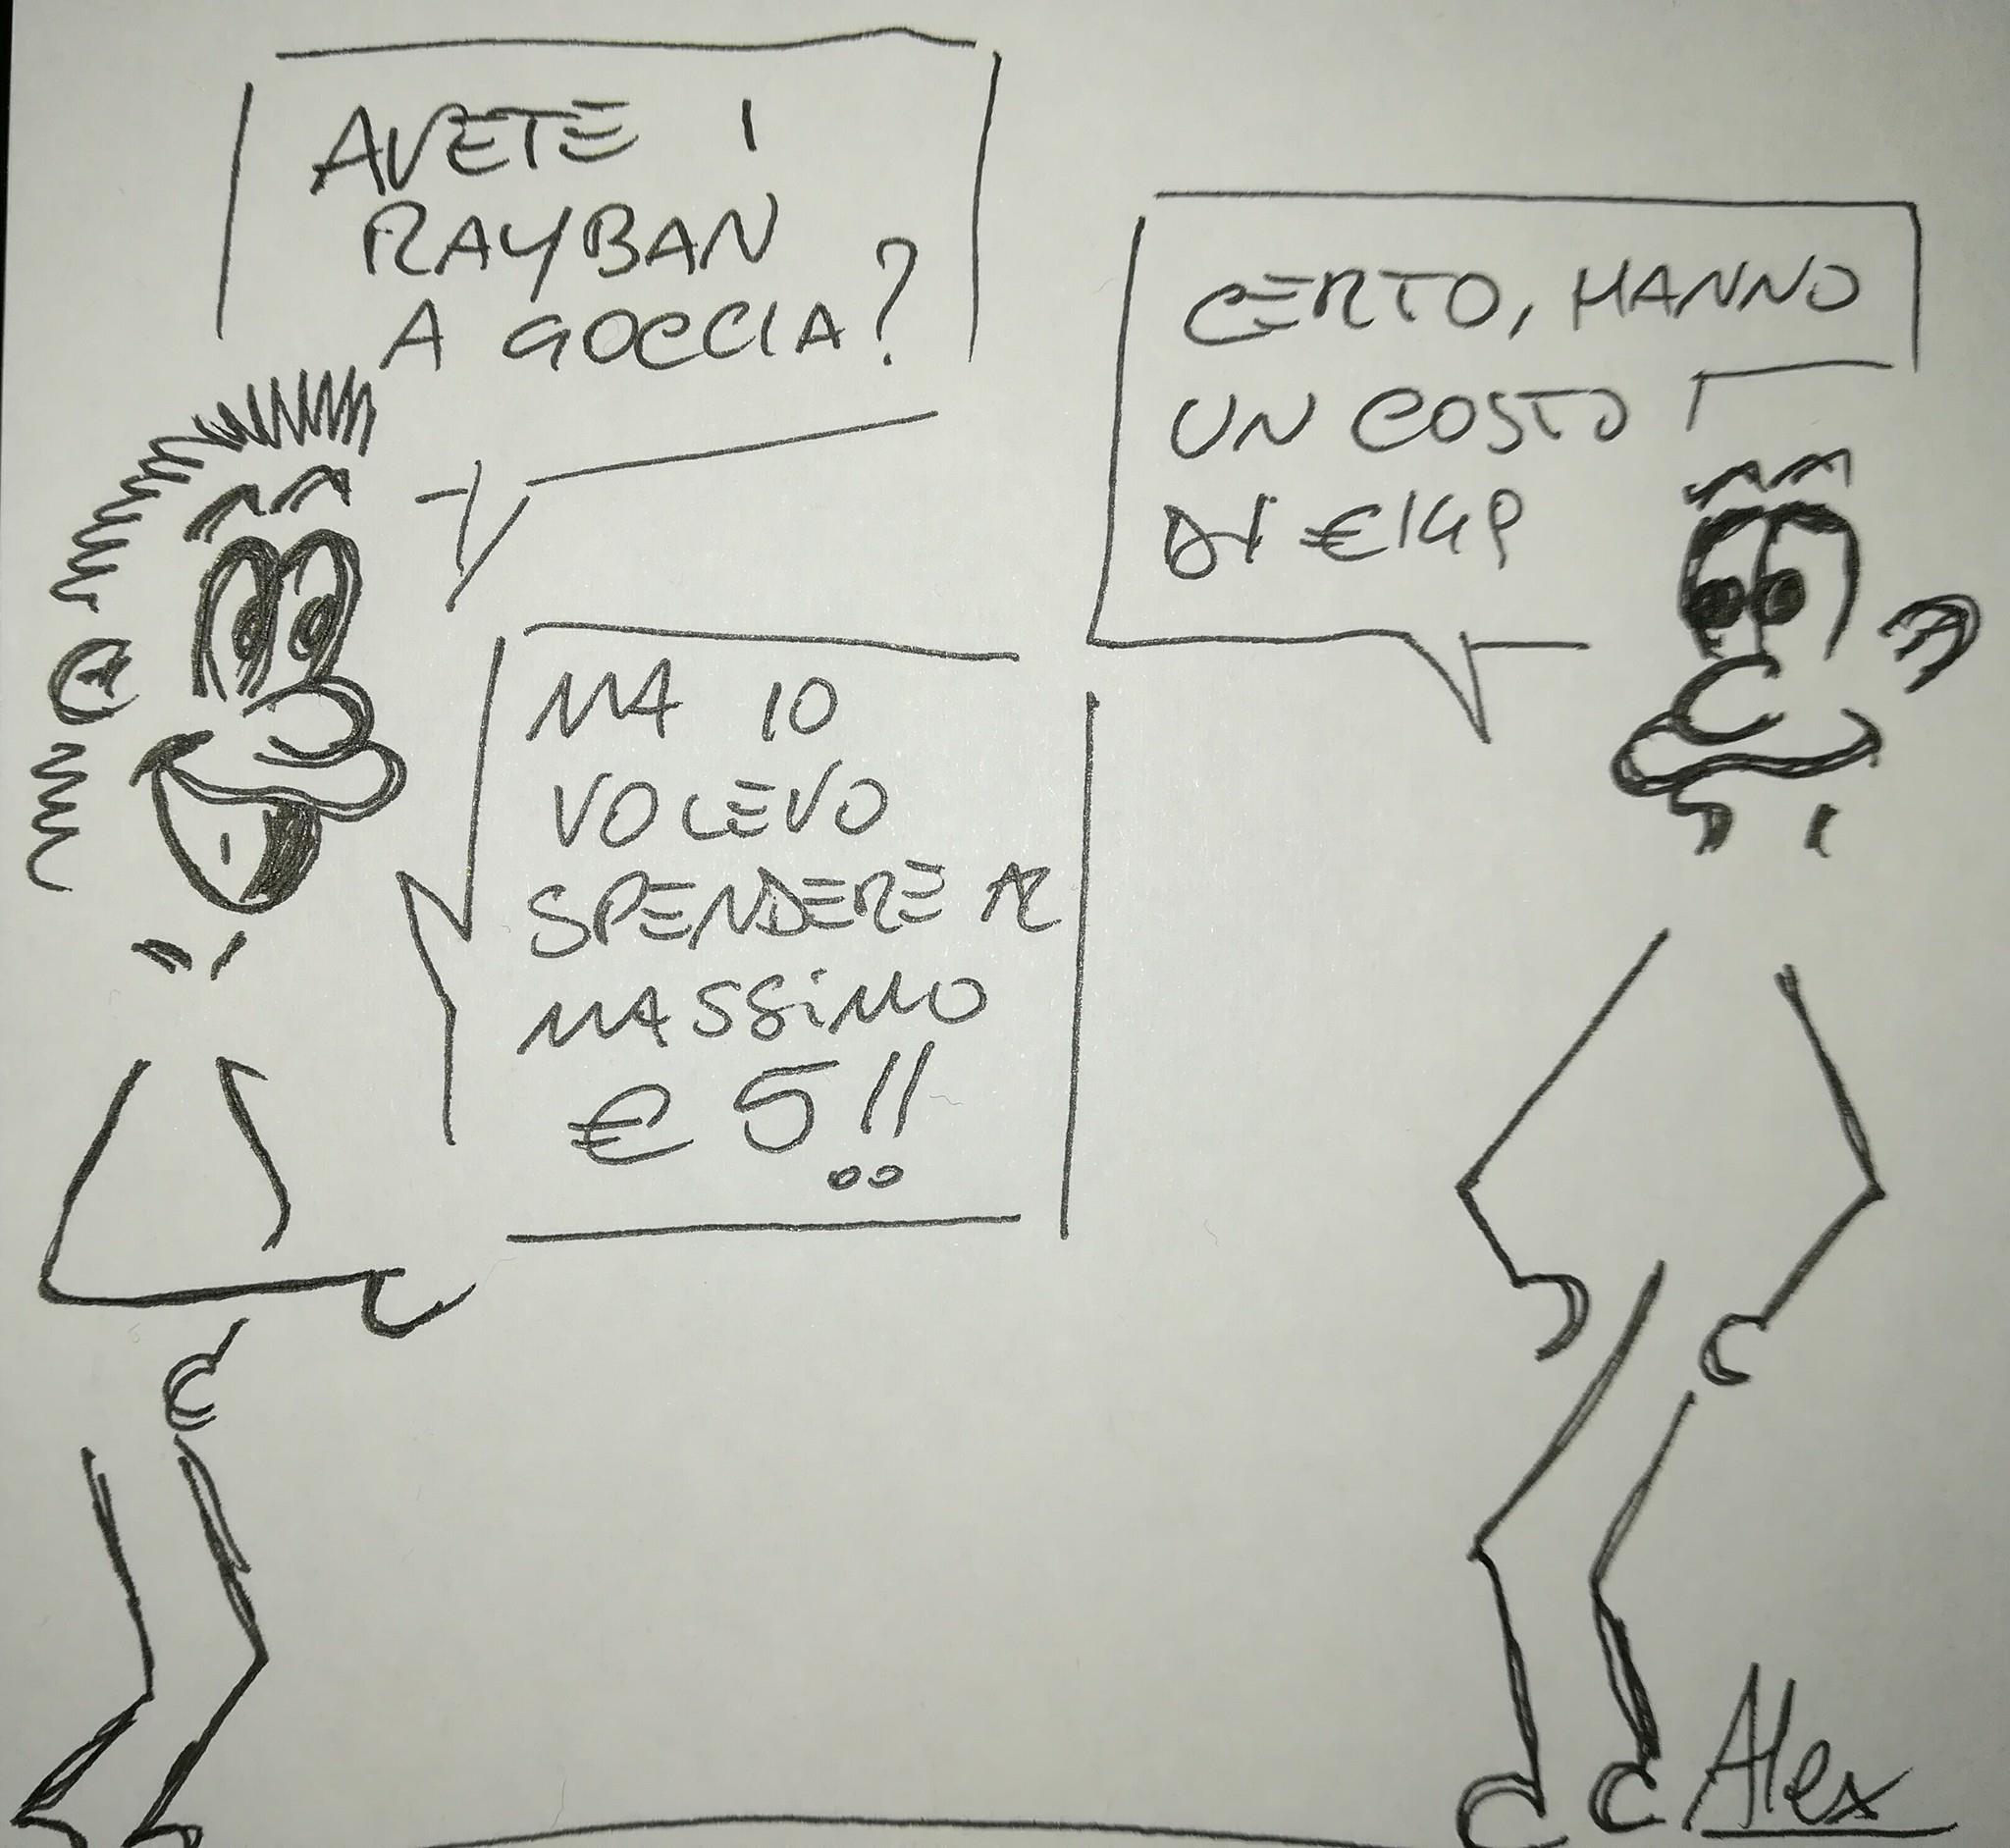 AVETE I
RAYBAN
A GOCCIA?
CERTO, HANNO
UN COSTO
DI €149
MA IO
VOLEVO
SPENDERE AL
MASSIMO
€ 5!!
Alex